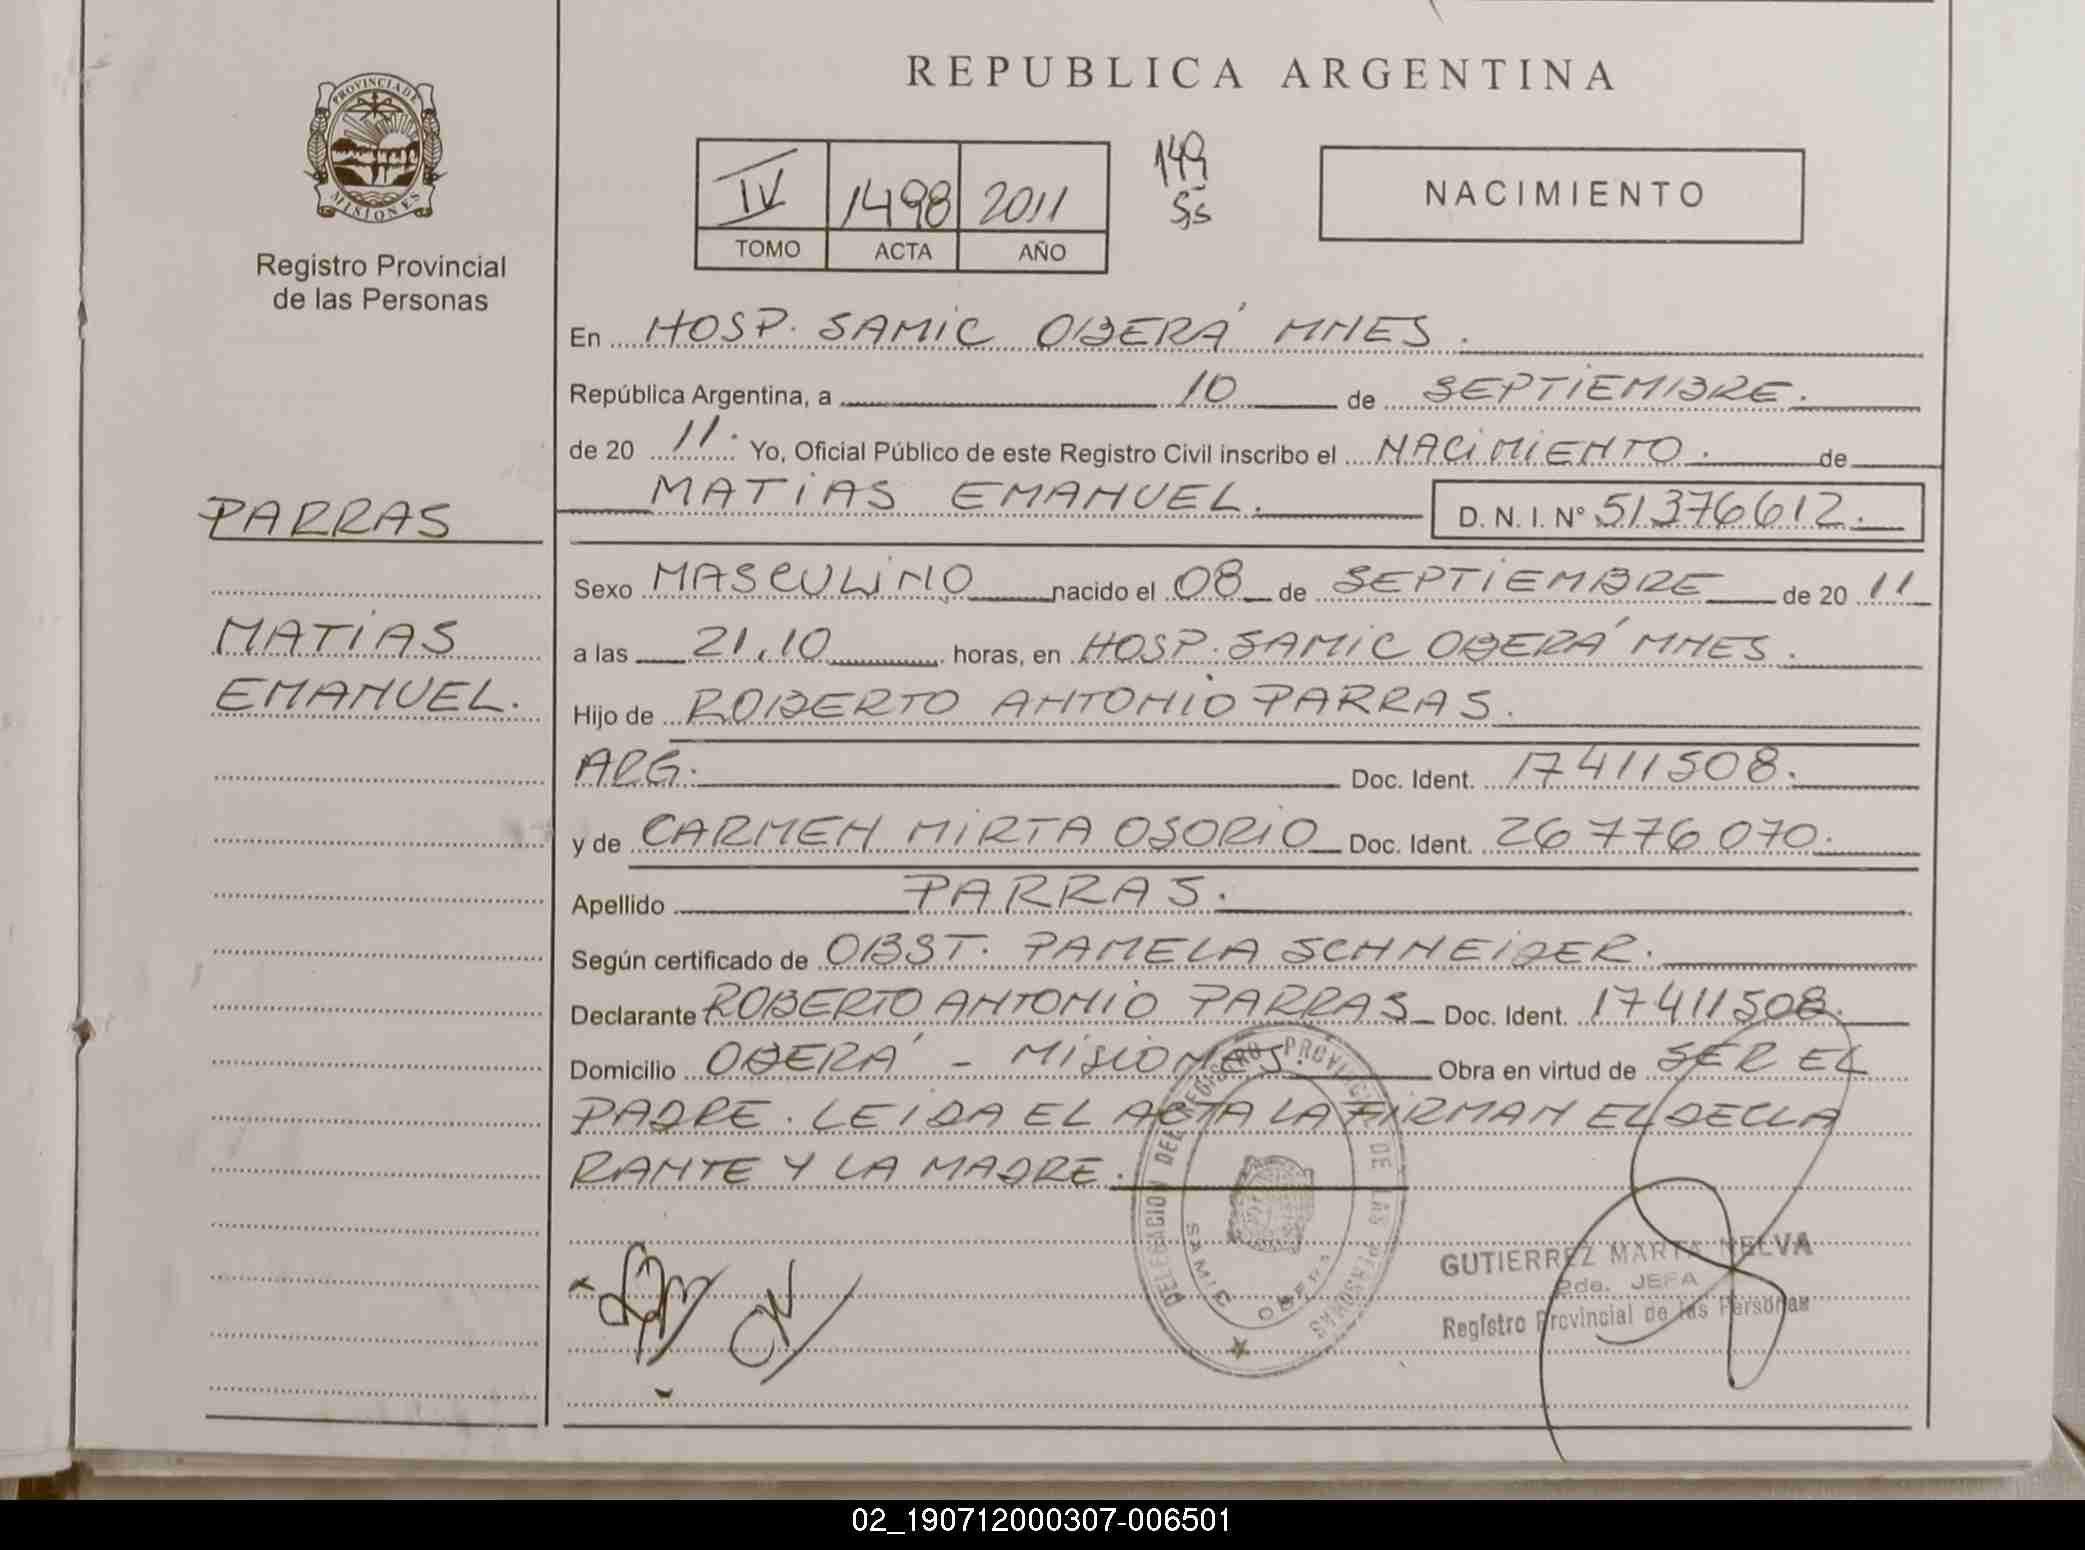 REPUBLICA ARGENTINA
PROVINCIA DE
MISIONES
Registro Provincial
de las Personas
IV 1498 2011
TOMO ACTA AÑO
149
NACIMIENTO
En HOSP. SAMIC OBERÁ MNES.
República Argentina, a 10 de SEPTIEMBRE.
de 20 11. Yo, Oficial Público de este Registro Civil inscribo el NACIMIENTO. de
MATIAS EMANUEL. D. N. I. N° 51376612.
PARRAS
MATIAS
EMANUEL.
Sexo MASCULINO nacido el 08 de SEPTIEMBRE de 20 11
a las 21,10 horas, en HOSP. SAMIC OBERÁ MNES.
Hijo de ROBERTO ANTONIO PARRAS.
ARG. Doc. Ident. 17411508.
y de CARMEN MIRTA OSORIO Doc. Ident. 26776070.
Apellido PARRAS.
Según certificado de OBST. PAMELA SCHNEIDER.
Declarante ROBERTO ANTONIO PARRAS Doc. Ident. 17411508.
Domicilio OBERÁ - MISIONES. Obra en virtud de SER EL
PADRE. LEIDA EL ACTA LA FIRMAN EL DECLA
RANTE Y LA MADRE.
DELEGACION DEL REGISTRO PROVINCIAL DE LAS PERSONAS
SAMIC OBERA
GUTIERREZ MARTA NELVA
2da. JEFA
Registro Provincial de las Personas
02_190712000307-006501